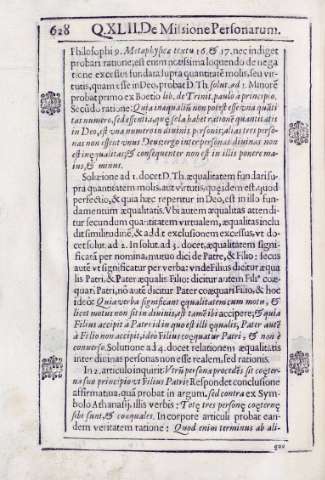 628 Q.XLII. De Missione Personarum.
Philosophi 9. Metaphysica textu 16. & 17. nec indiget
probari ratione, est enim notissima loquendo de nega
tione excessus fundata supra quantitatē molis, seu vir-
tutis, quam esse in Deo, probat D. Th. solut. ad 1. Minorē
probat primo ex Boetio lib. de Trinit. paulo a principio.
Secūdo ratione: Quia inaqualitas non potest esse vna quāti
tas numero, sed essentia, quę se sola habet rationē quantitatis
in Deo, est vna numero in diuinis personis; alias tres perso-
næ non essent vnus Deus: ergo inter personas diuinas non
est inęqualitas; & consequenter non est in illis ponere ma-
ius, & minus.
Solutione ad 1. docet D. Th. æqualitatem fundari su-
pra quantitatem molis, aut virtutis, quę idem est, quod
perfectio, & quia hæc reperitur in Deo, est in illo fun-
damentum æqualitatis. Vbi autem æqualitas attendi-
tur secundum quantitatem virtualem, æqualitas inclu
dit similitudinē, & addit exclusionem excessus, vt do-
cet solut. ad 2. In solut. ad 3. docet, æqualitatem signi-
ficari per nomina, mutuo dici de Patre, & Filio: secus
autē vt significatur per verba: vnde Filius dicitur æqua
lis Patri, & Pater æqualis Filio: dicitur autem Filiꝰ coæ-
quari Patri, nō autē dicitur Pater coæquari Filio, & hoc
ideò: Quia verba significant ęqualitatem cum motu, &
licet motus non sit in diuinis, est tamē ibi accipere, & quia
Filius accipit à Patre id in quo est illi ęqualis, Pater autē
à Filio non accipit, ideò Filius coęquatur Patri, & non è
conuerso. Solutione ad 4. docet relationem æqualitatis
inter diuinas personas non esse realem, sed rationis.
In 2. articulo inquirit. Vtrū persona procedēs sit coęter-
na suo principio vt Filius Patri: Respondet conclusione
affirmatiua, quā probat in argum. sed contra ex Sym-
bolo Athanasij, illis verbis: Totę tres personę coęternę
sibi sunt, & coęquales. In corpore articuli probat ean-
dem veritatem ratione: Quod enim terminus ab ali-
quo